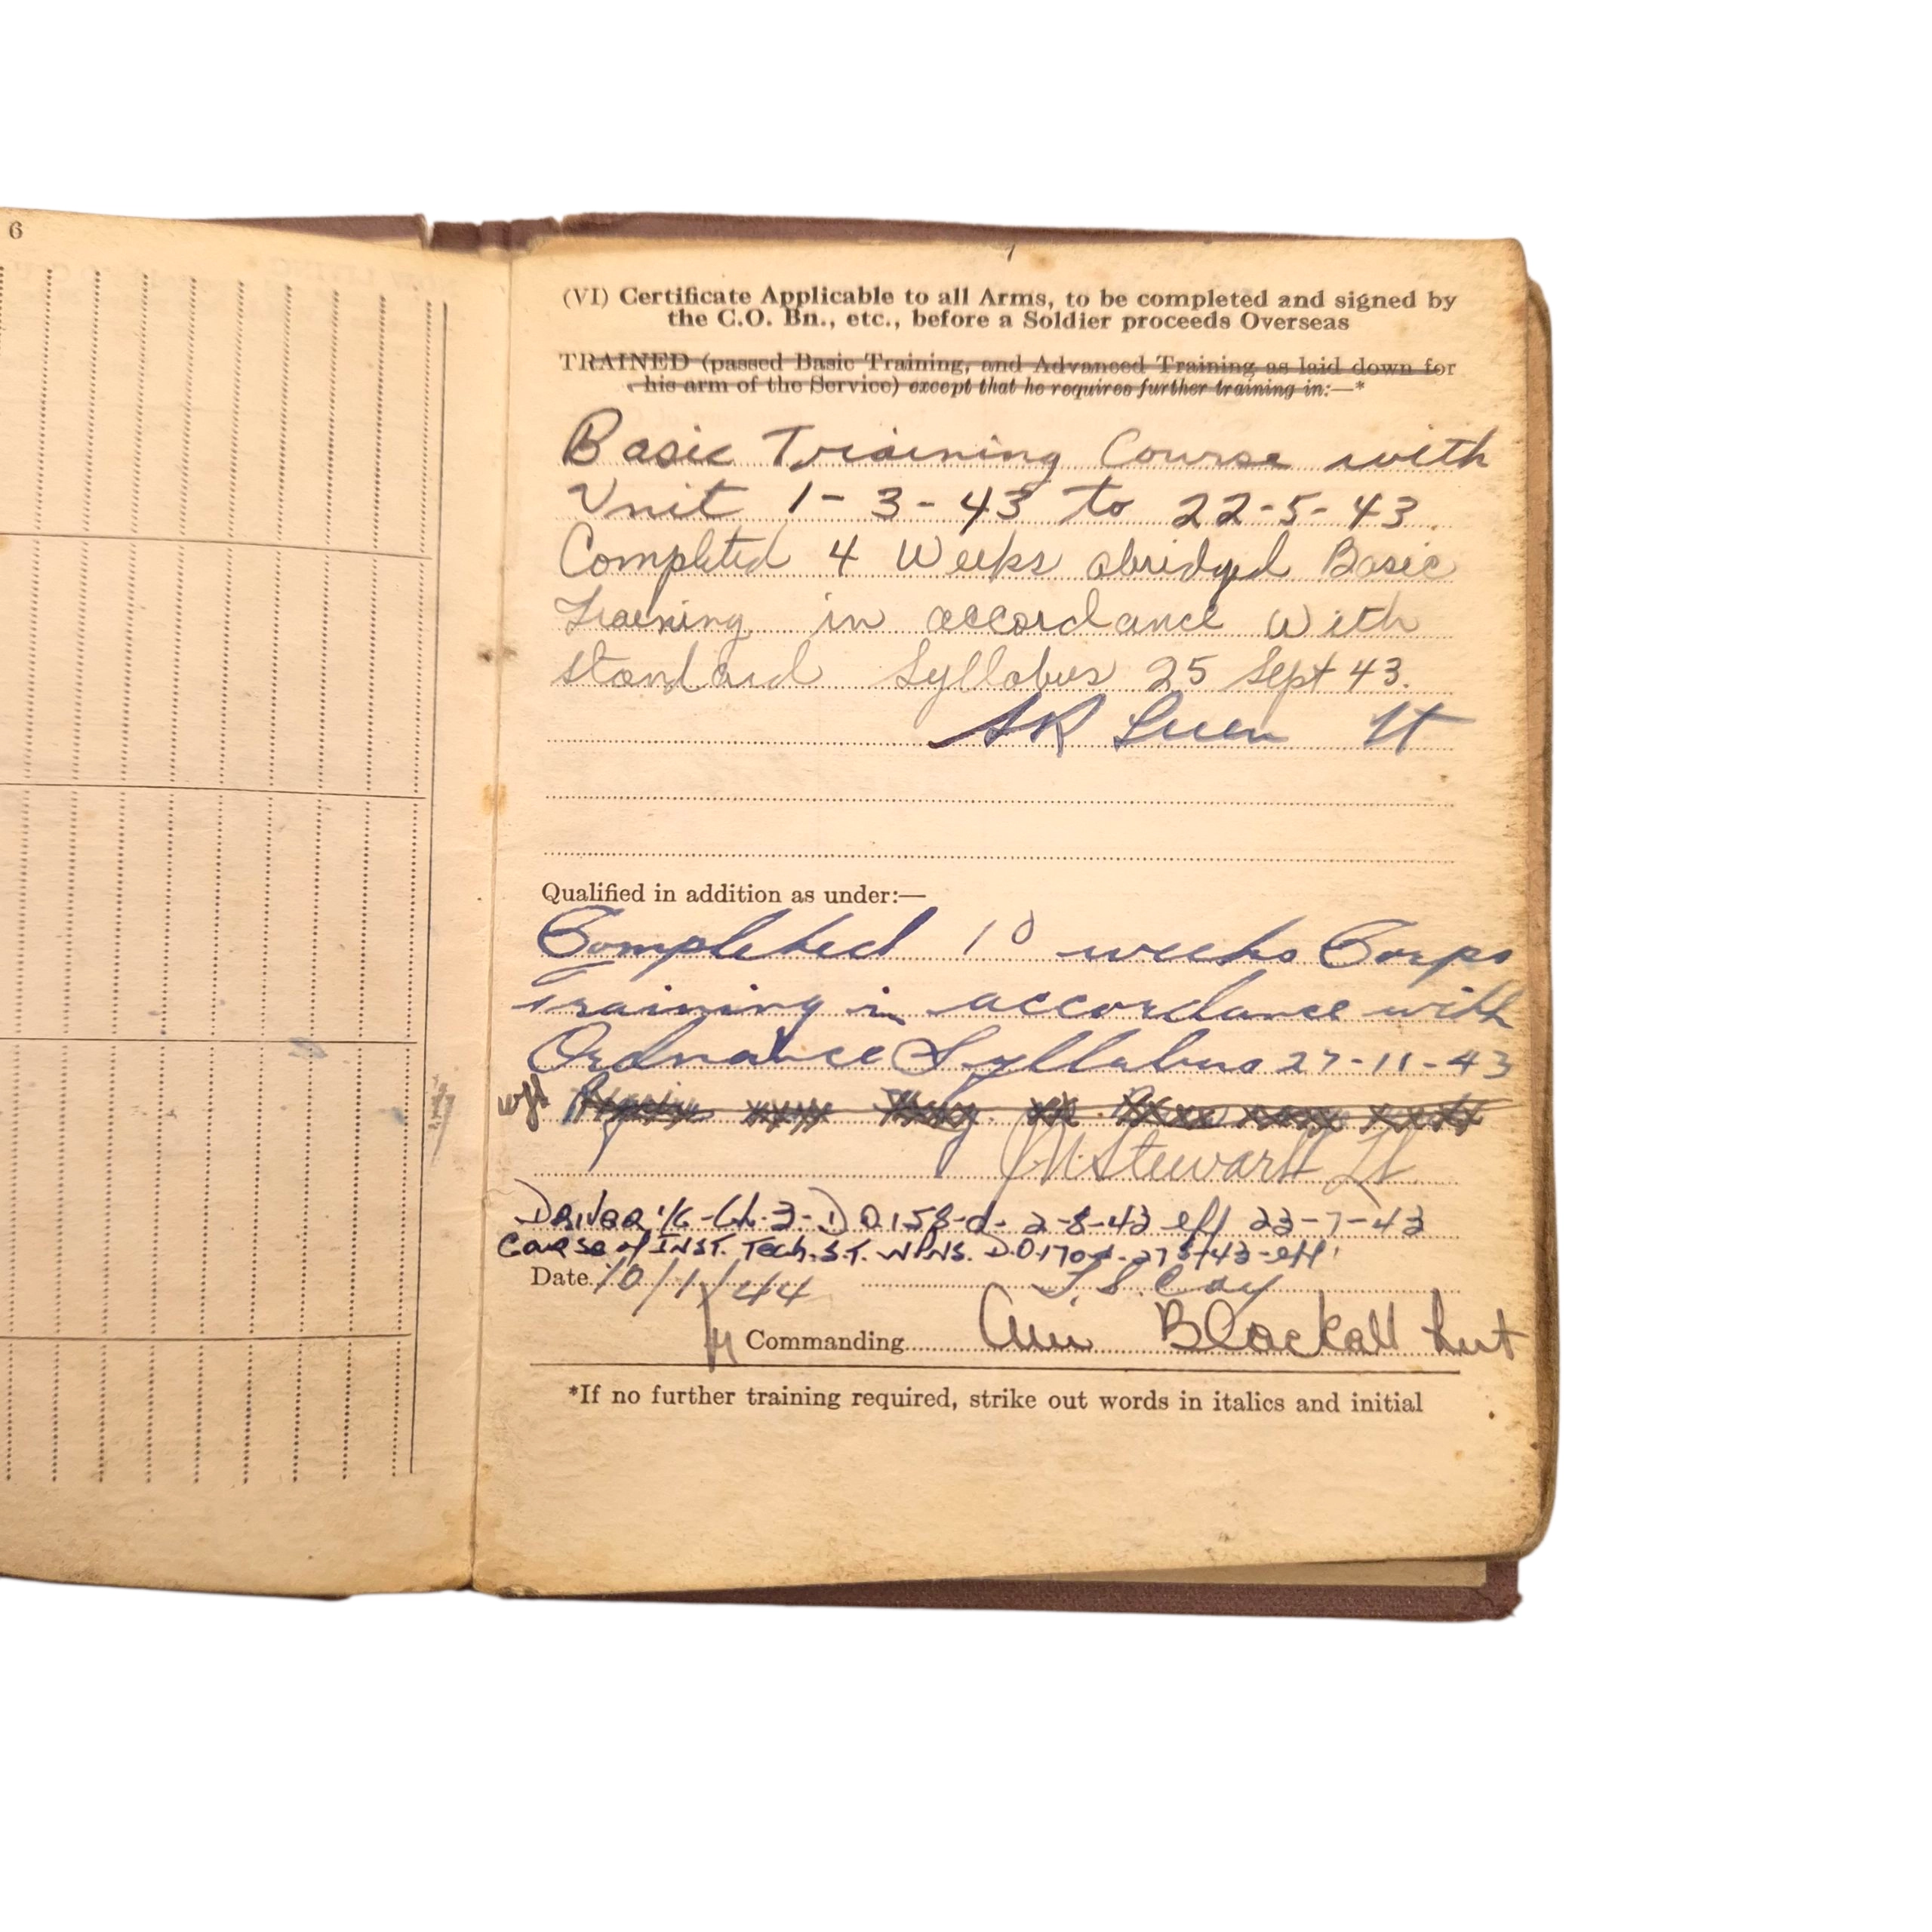 6
(VI) Certificate Applicable to all Arms, to be completed and signed by
the C.O. Bn., etc., before a Soldier proceeds Overseas
TRAINED (passed Basic Training, and Advanced Training as laid down for
his arm of the Service) except that he requires further training in:—*
Basic Training Course with
Unit 1-3-43 to 22-5-43.
Completed 4 Weeks abridged Basic
Training in accordance With
Standard Syllabus 25 Sept 43.
Lt
Qualified in addition as under:—
Completed 10 weeks Corps
Training in accordance with
Ordnance Syllabus 27-11-43
Stewart Lt
DRIVER i/c - Cl. 3 - D.O.158-d- 2-8-43 eff 23-7-43
Course of INST. Tech. S.T. WPNS. D.O.170
Date 10/1/44
Commanding Blackall Lieut
*If no further training required, strike out words in italics and initial